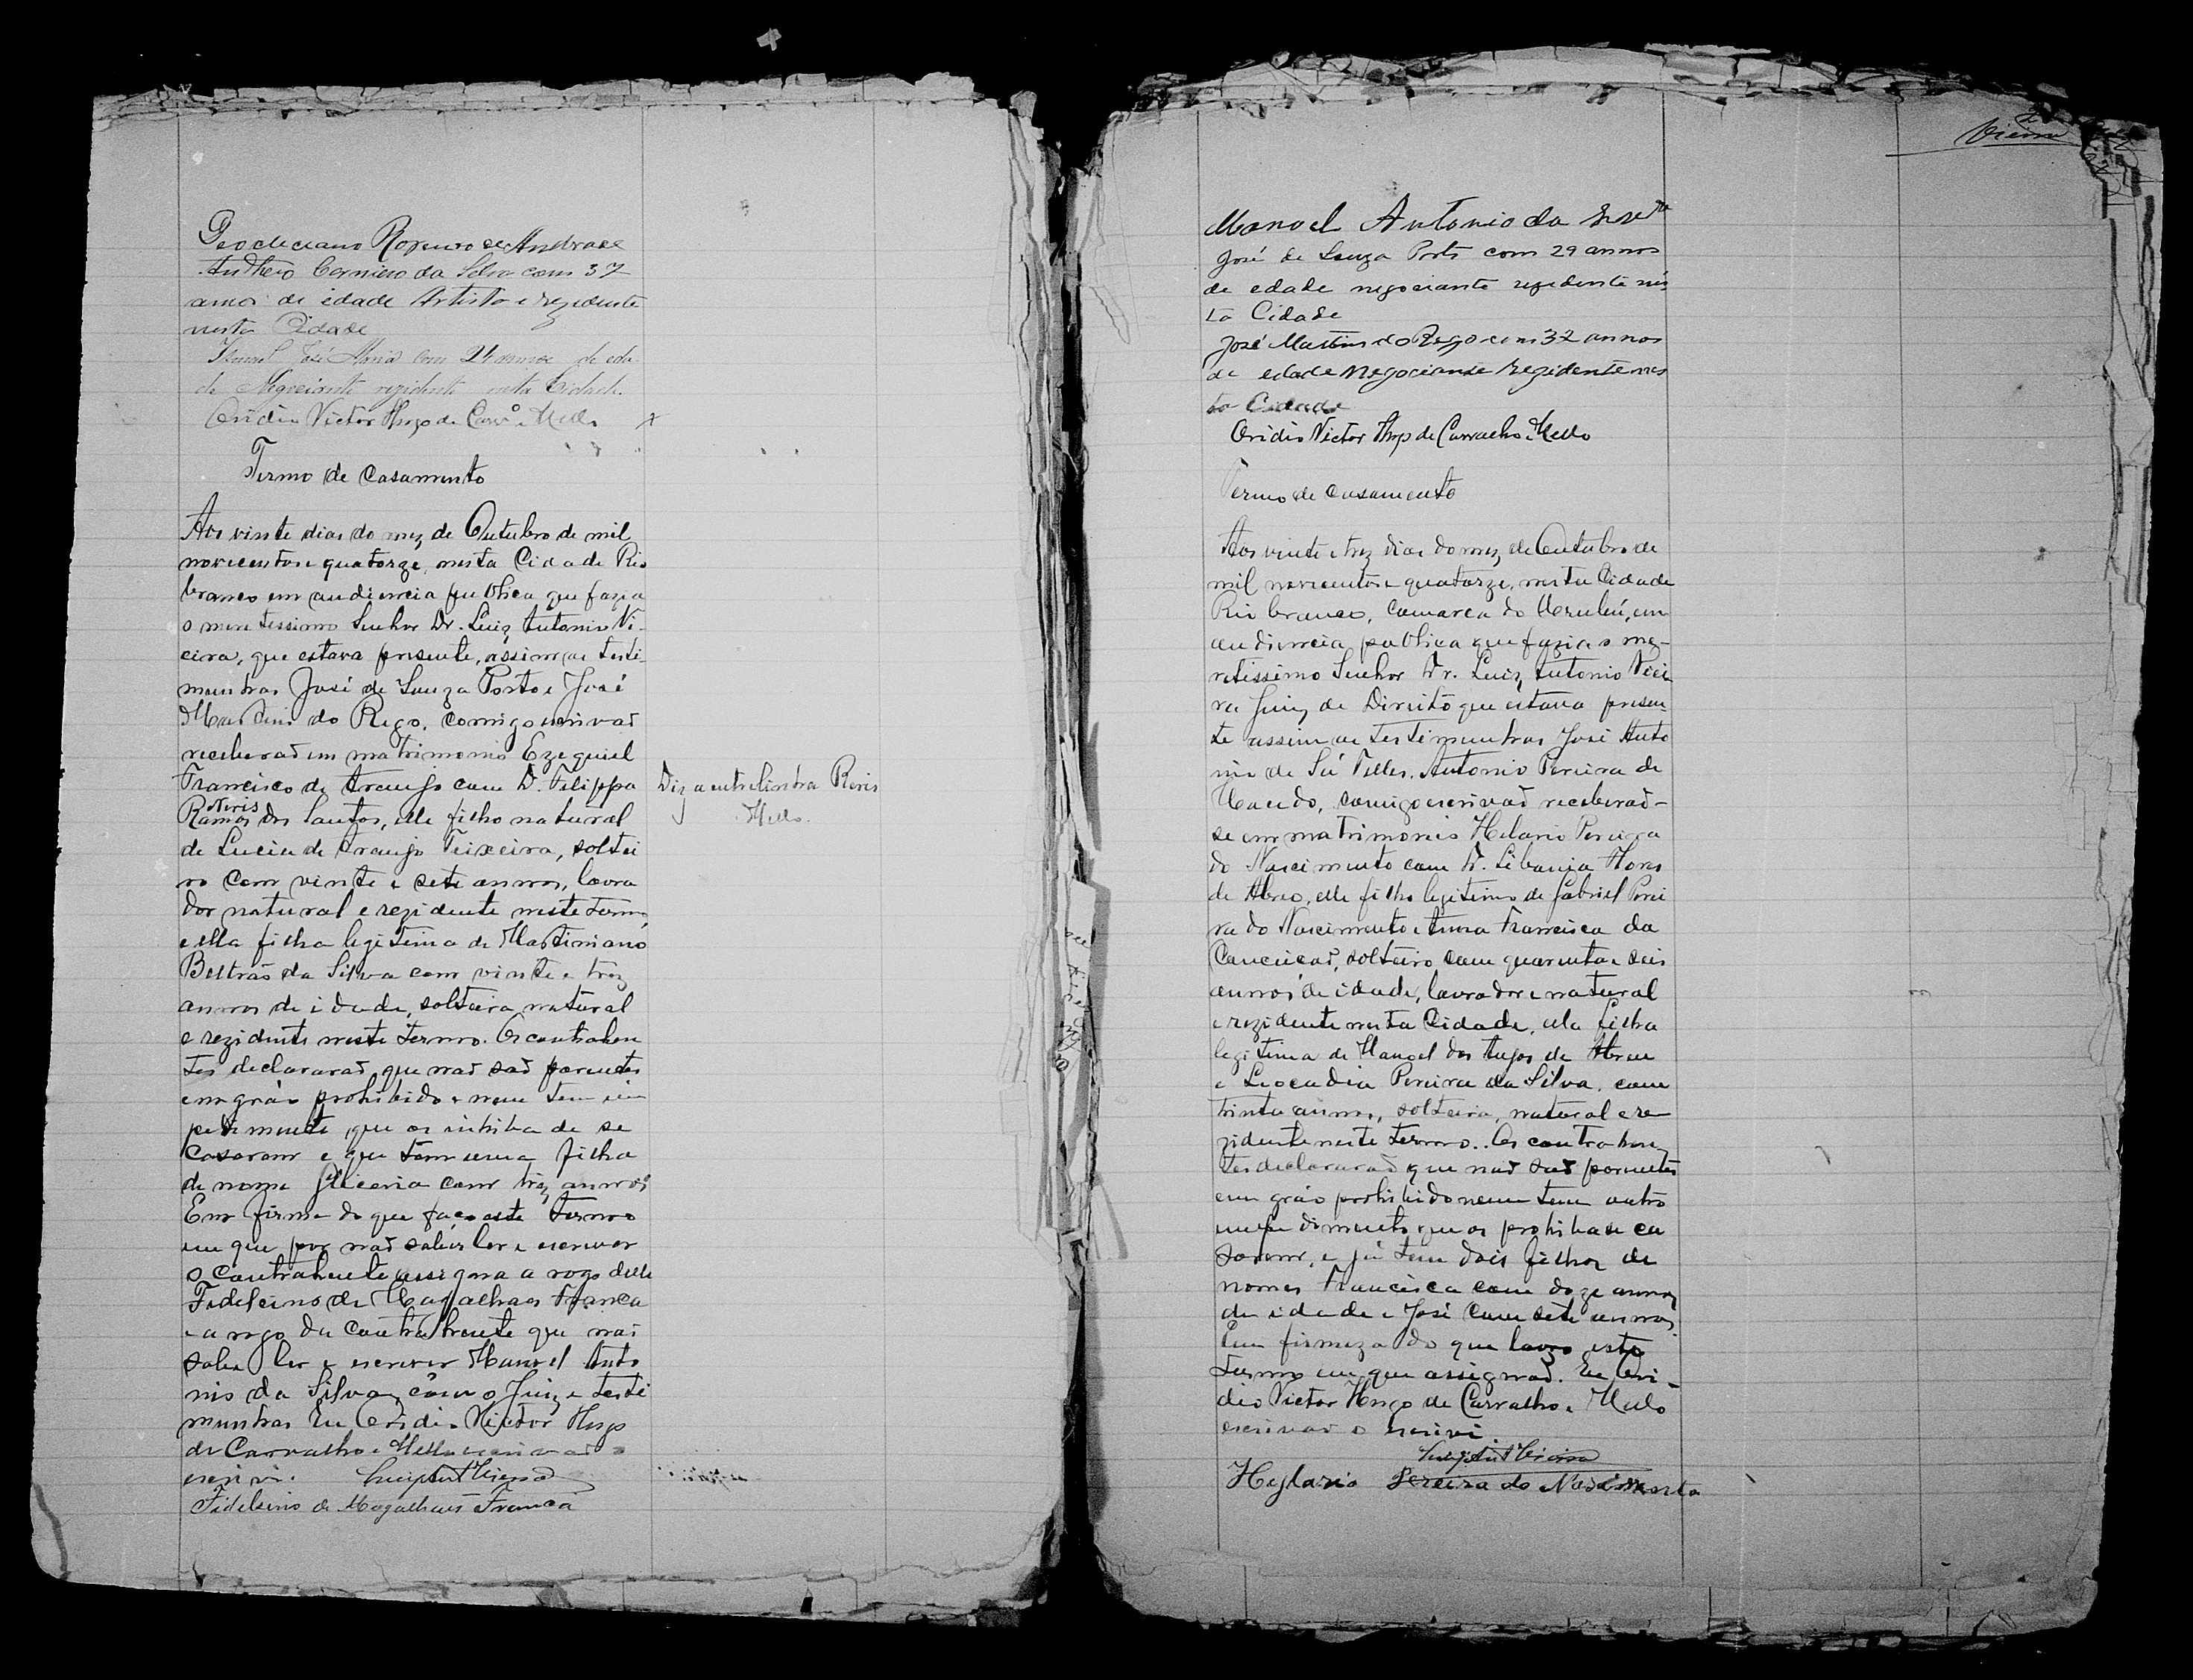 Deocleciano Rozendo de Andrade
Anthero Carneiro da Silva com 37
annos de idade Artista e rezidente
nesta Cidade
Manoel José Maria com 24 annos de eda
de Negociante rezidente nesta Cidade.
Ovidio Victor Hugo de Carvº e Mello
Termo de Casamento
Aos vinte dias do mez de Outubro de mil
novecentos e quatorze, nesta Cidade Rio
branco em audiencia publica que fazia
o meretissimo Senhor Dr. Luiz Antonio Vi-
eira, que estava presente, assim as teste-
munhas José de Souza Porto e José
Martins do Rego, comigo escrivaõ
receberaõ em matrimonio Ezequiel
Francisco de Araujo com D. Filippa
Neris
Ramos dos Santos, elle filho natural
de Lucia de Araujo Teixeira, soltei
ro com vinte e sete annos, lavra
dor natural e rezidente neste termo,
e ella filha legitima de Martiniano
Beltraõ da Silva com vinte e trez
annos de idade, solteira natural
e rezidente neste termo. Os contrahen
tes declararaõ que naõ saõ parentes
em gráo prohibido e nem tem im
pedimento que os inhiba de se
casarem e que tem uma filha
de nome Gliceria com trez annos
Em firmesa do que faço este termo
em que por naõ saber ler e escrever
o contrahente assigna a rogo delle
Fidelcino de Magalhaes Franca
e a rogo da contrahente que naõ
sabe ler e escrever Manoel Anto
nio da Silva, com o Juiz e teste
munhas Eu Ovidio Victor Hugo
de Carvalho e Mello escrivaõ o
escrivi. Luiz Ant Vieira
Fidelcino de Magalhães Franca
Diz a entrelinha Neris
Mello.
Vieira
Manoel Antonio da
José de Souza Porto com 29 annos
de edade negociante rezidente nes
ta Cidade
José Martins do Rego com 32 annos
de edade Negociante rezidente nes
ta Cidade
Ovidio Victor Hugo de Carvalho e Mello
Termo de Casamento
Aos vinte e trez dias do mez de Outubro de
mil novecentos e quatorze, nesta Cidade
Rio branco, Comarca do Urubú, em
audiencia publica que fazia o me-
retissimo Senhor Dr. Luiz Antonio Viei
ra Juiz de Direito que estava presen
te assim as testemunhas José Anto
nio de Sá Telles, Antonio Pereira de
Macedo, comigo escrivaõ receberaõ-
se em matrimonio Hilario Pereira
do Nascimento com D. Libania Flores
de Abreo, elle filho legitimo de Gabriel Perei
ra do Nascimento e Anna Francisca da
Conceicaõ, solteiro com quarenta e seis
annos de idade, lavrador e natural
e rezidente nesta Cidade, ella filha
legitima de Manoel dos Anjos de Abreu
e Leocadia Pereira da Silva, com
trinta annos, solteira, natural e re-
zidente neste termo. Os contrahen
tes declararaõ que naõ saõ parentes
em gráo prohibido nem tem outro
impedimento que os prohiba se ca
sarem, e já tem dois filhos de
nomes Francisca com doze annos
de idade e José com sete annos.
Em firmeza do que lavro este
termo em que assignaõ. Eu Ovi-
dio Victor Hugo de Carvalho e Mello
escrivaõ o escrivi
Luiz Ant Vieira
Hylario Pereira do Nascimento